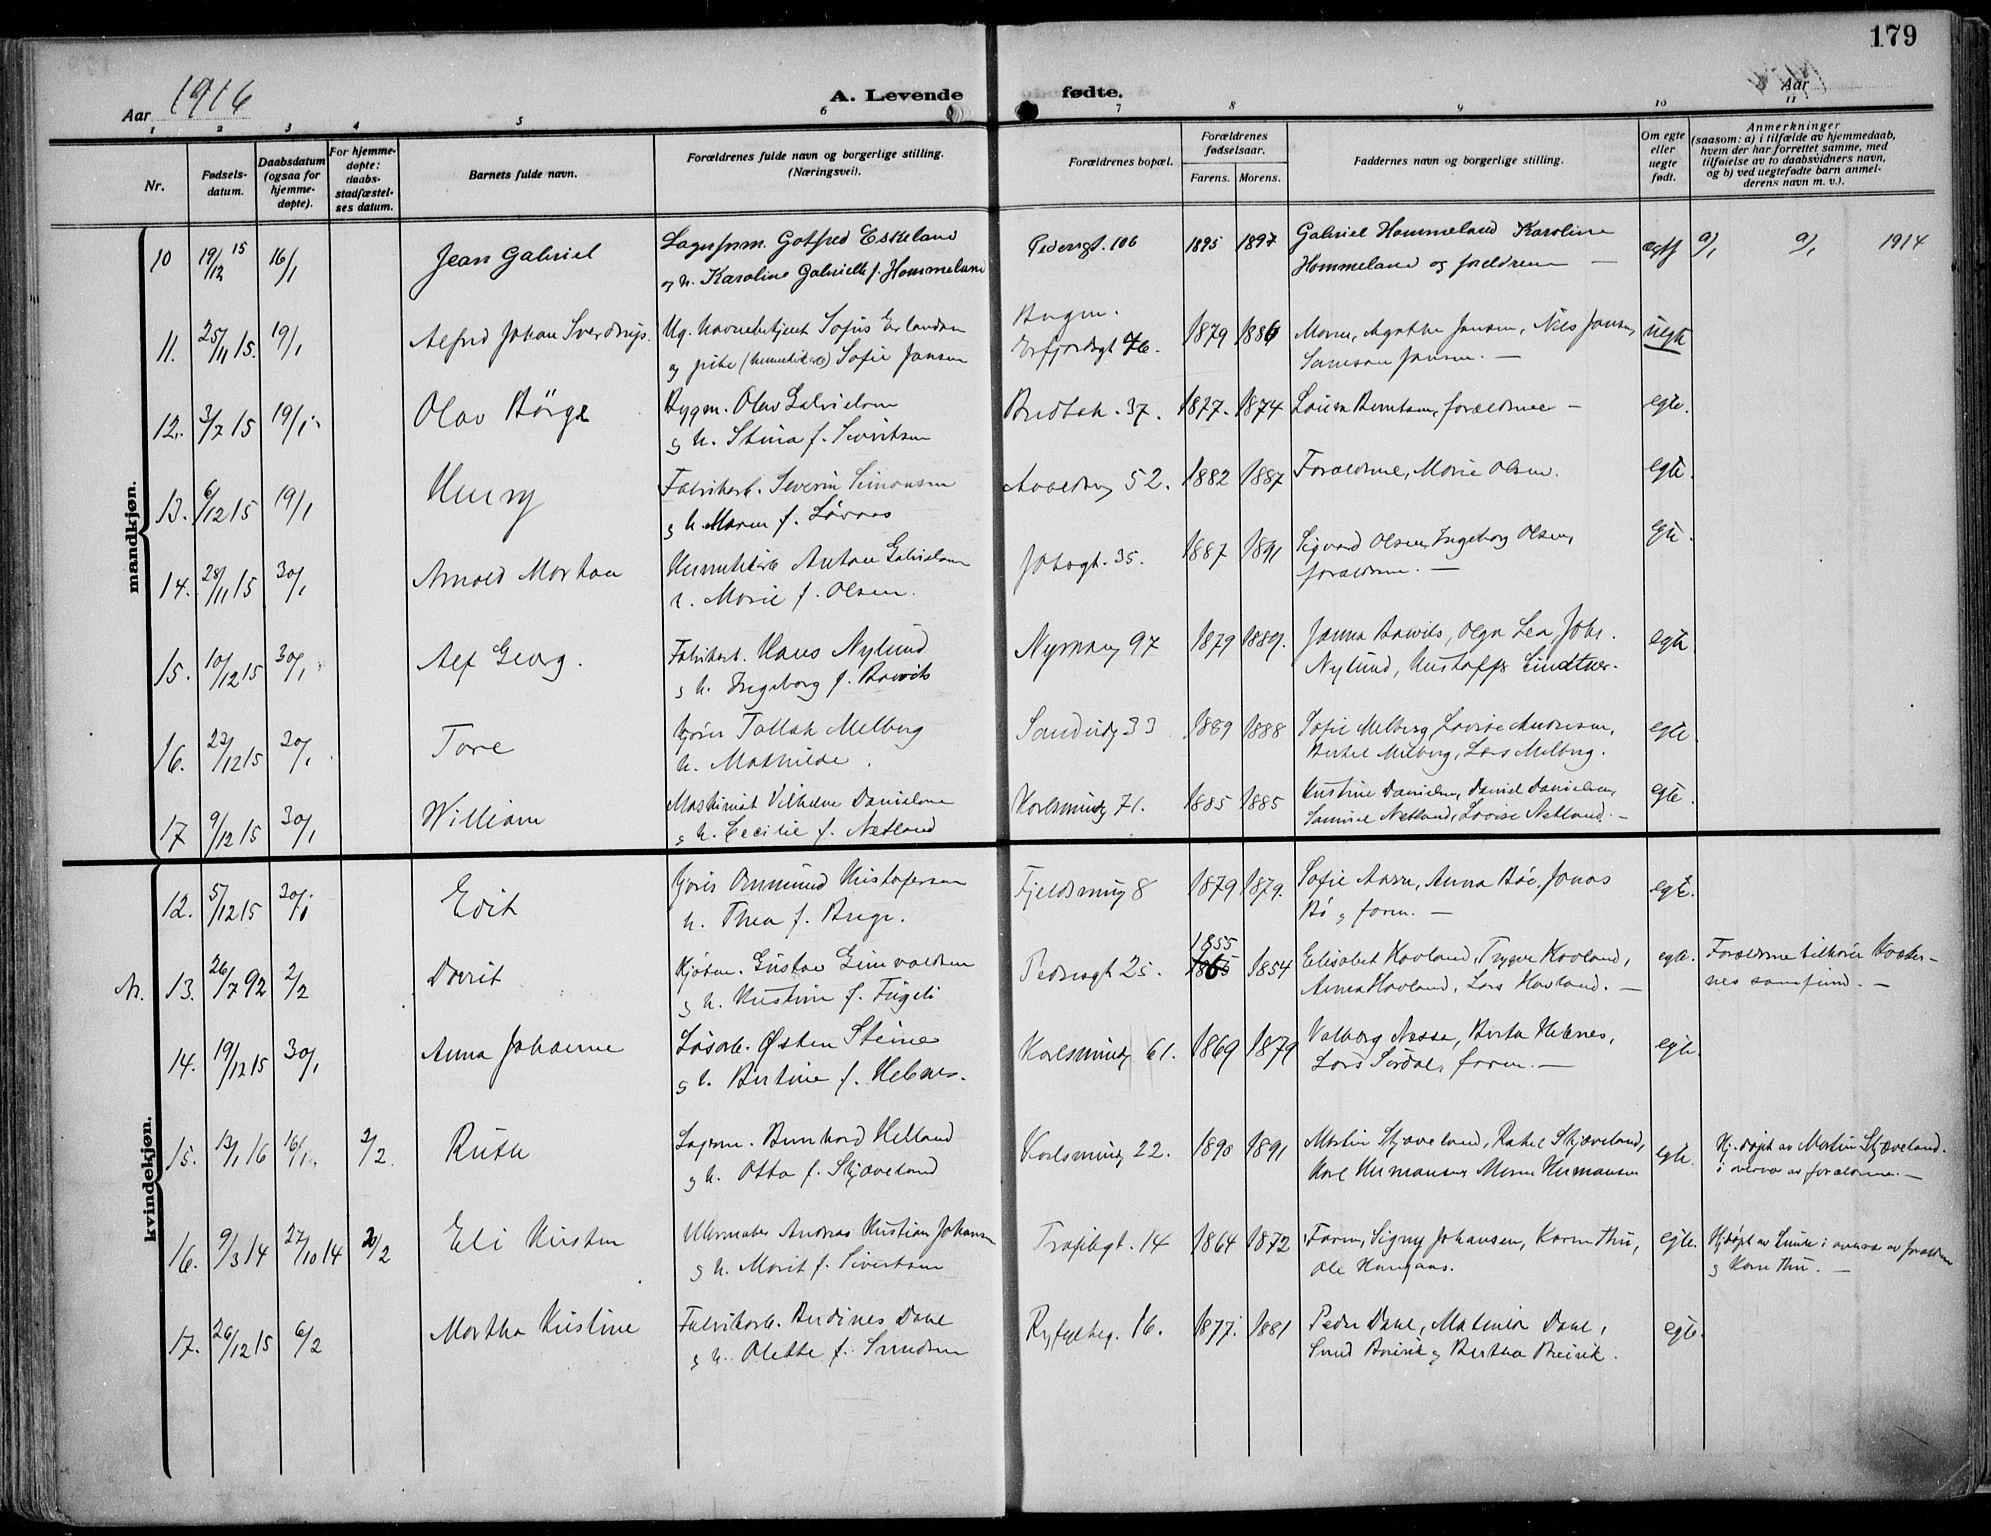 179
Aar 1916
A. Levende fødte.
Aar
1 2 3 4 5 6 7 8 9 10 11
Nr.
Fødsels-
datum.
Daabsdatum
(ogsaa for
hjemme-
døpte).
For hjemme-
døpte:
daabs-
stadfæstel-
ses datum.
Barnets fulde navn.
Forældrenes fulde navn og borgerlige stilling.
(Næringsvei).
Forældrenes bopæl.
Forældrenes
fødselsaar.
Farens. Morens.
Faddernes navn og borgerlige stilling.
Om egte
eller
uegte
født.
Anmerkninger
(saasom: a) i tilfælde av hjemmedaab,
hvem der har forrettet samme, med
tilføielse av to daabsvidners navn,
og b) ved uegtefødte barn anmel-
derens navn m. v.).
mandkjøn.
10 19/12 15 16/1 Jean Gabriel Gotfred Eskeland Pedersgt. 106 1895 1897 Gabriel Hommeland Karoline
og h. Karoline Gabrielle f. Hommeland Hommeland og foreldrene — 9/1 9/1 1914
11. 25/11 15. 19/1 Alfred Johan Sverdrup. Ug. Sofus Erlandsen 1879 1886 Moren, Agathe Jansen, Nils Jansen, uegte
og pike Sofie Jansen Samson Jansen. —
12. 3/7 15 19/1 Olav Börge Bygm. Olav Gabrielsen 37. 1877. 1874 Louisa Berntsen, forældrene — egte.
og h. Stina f. Sivertsen
13. 6/12 15 19/1 Henry Fabrikarb. Severin Simonsen 52. 1882 1887 Forældrene, Marie Olsen. egte.
og h. Maren f.
14. 28/11 15 30/1 Arnold Morton Anton Gabrielsen 35. 1887 1891 Sigvard Olsen, Ingeborg Olsen, egte.
h. Marie f. Olsen. forældrene. —
15. 10/12 15 30/1 Alf Georg. Fabrikarb. Hans Nylund Nymanv 97 1879 1889. Janna Olga Lea, Johs. egte.
og h. Ingeborg f. Nylund,
16. 23/12 15 30/1 Tore Gjörer Tallak Melberg 33 1889 1888 Sofie Melberg, Lovise Andresen, egte.
h. Mathilde. Bertel Melberg, Lars Melberg.
17 9/12 15 30/1 William Maskinist Vilhelm Danielsen Karlsminde 71. 1885 1885 Kristine Danielsen, Daniel Danielsen, egte.
og h. Cecilie f. Netland Samuel Netland, Lovise Netland. —
kvindekjøn.
12. 5/12 15 30/1 Edit Ommund Kristofersen 8 1879 1879. Sofie Aasen, Anna Bö, Jonas egte.
h. Thea f. Berge. Bö og faren. —
N. 13. 26/7 92 2/2 Dorrit Kjøbm. Gustav Pedersgt 25. 1855 1865 1854 Elisabet Havland, Trygve Havland, egte. Forældrene tilhörer Kvæker-
og h. Kristine f. Fugeli Anna Havland, Lars Havland. — nes samfund. —
14. 19/12 15 30/1 Anna Johanne Løsarb. Østen Steine Karlsminde 61. 1869 1879 Valborg Nesse, Berta Hebnes, egte.
og h. Bertine f. Hebnes. Lars Sørdal, faren. —
15. 13/1 16 16/1. 2/2. Ruth Bernhard Helland Karlsminde 22. 1890 1891 Martin Skjæveland, Rakel Skjæveland, egte. Hj. døpt av Martin Skjæveland
og h. Otta f. Skjæveland Karl Hermansen Maren Hermansen i overvær av forældrene. —
16. 9/3 14 27/10 14 2/2 Eli Kirsten Uhrmaker Andreas Kristian Johansen 14 1864 1872 Faren, Signy Johansen, Karen Thu, egte. Hj.døpt av Lunde i overvær av forældrene
og h. Marit f. Sivertsen Ole og Karen Thu. —
17. 26/12 15 6/2 Martha Kristine Fabrikarb. Berdines Dane Ryfylkeg. 16. 1877. 1881 Peder Dane, Matilda Dane, egte.
og h. Olette f. Svendsen og Bertha Breivik.